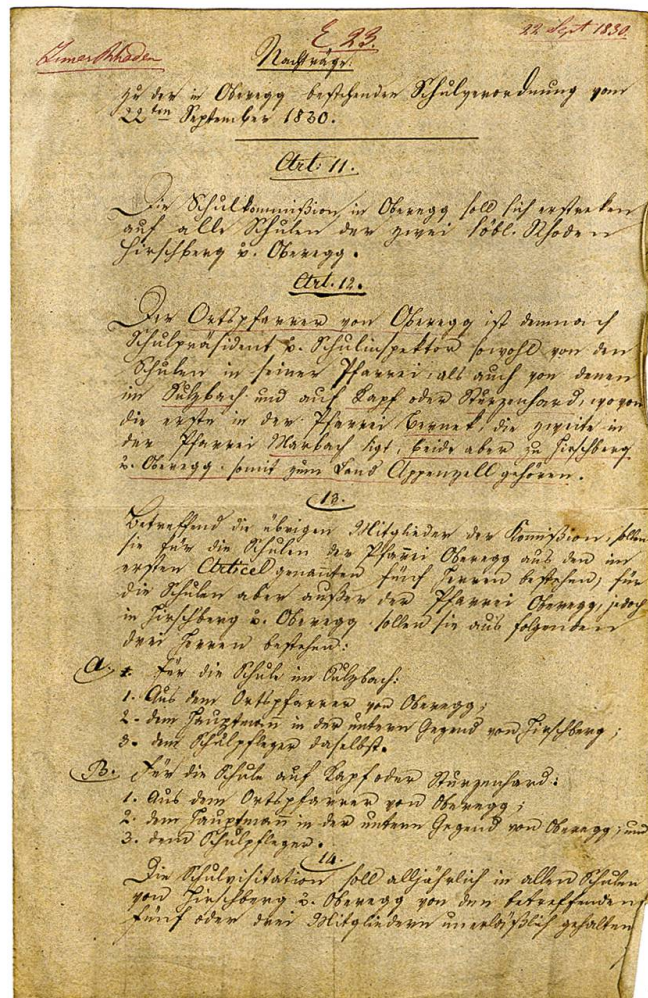 E. 23.
22. Sept 1830.
InnerRhoden
Nachträge
zu der in Oberegg bestehenden Schulverordnung vom
22ten September 1830.
Art: 11.
Die Schulkommißion in Oberegg soll sich erstreken
auf alle Schulen der zwei löbl. Rhoden
Hirschberg u. Oberegg.
Art. 12.
Der Ortspfarrer von Oberegg ist demnach
Schulpräsident u. Schulinspektor sowohl von den
Schulen in seiner Pfarrei, als auch von denen
im Sulzbach und auf Kapf oder Sturzenhard, wovon
die erste in der Pfarrei Bernek, die zweite in
der Pfarrei Marbach ligt, beide aber zu Hirschberg
u. Oberegg somit zum Land Appenzell gehören.
13.
Betreffend die übrigen Mitglieder der Kommißion, sollen
sie für die Schulen der Pfarrei Oberegg aus den im
ersten Articel genannten fünf Herren bestehen, für
die Schulen aber außer der Pfarrei Oberegg, jedoch
in Hirschberg u. Oberegg sollen sie aus folgenden
drei Herren bestehen:
A. Für die Schule im Sulzbach:
1. Aus dem Ortspfarrer von Oberegg;
2. dem Hauptmann in der untern Gegend von Hirschberg;
3. dem Schulpfleger daselbst.
B. Für die Schule auf Kapf oder Sturzenhard:
1. Aus dem Ortspfarrer von Oberegg;
2. dem Hauptmann in der untern Gegend von Oberegg; und
3. dem Schulpfleger.
14.
Die Schulvisitation soll alljährlich in allen Schulen
von Hirschberg u. Oberegg von den betreffenden
fünf oder drei Mitgliedern unerläßlich gehalten